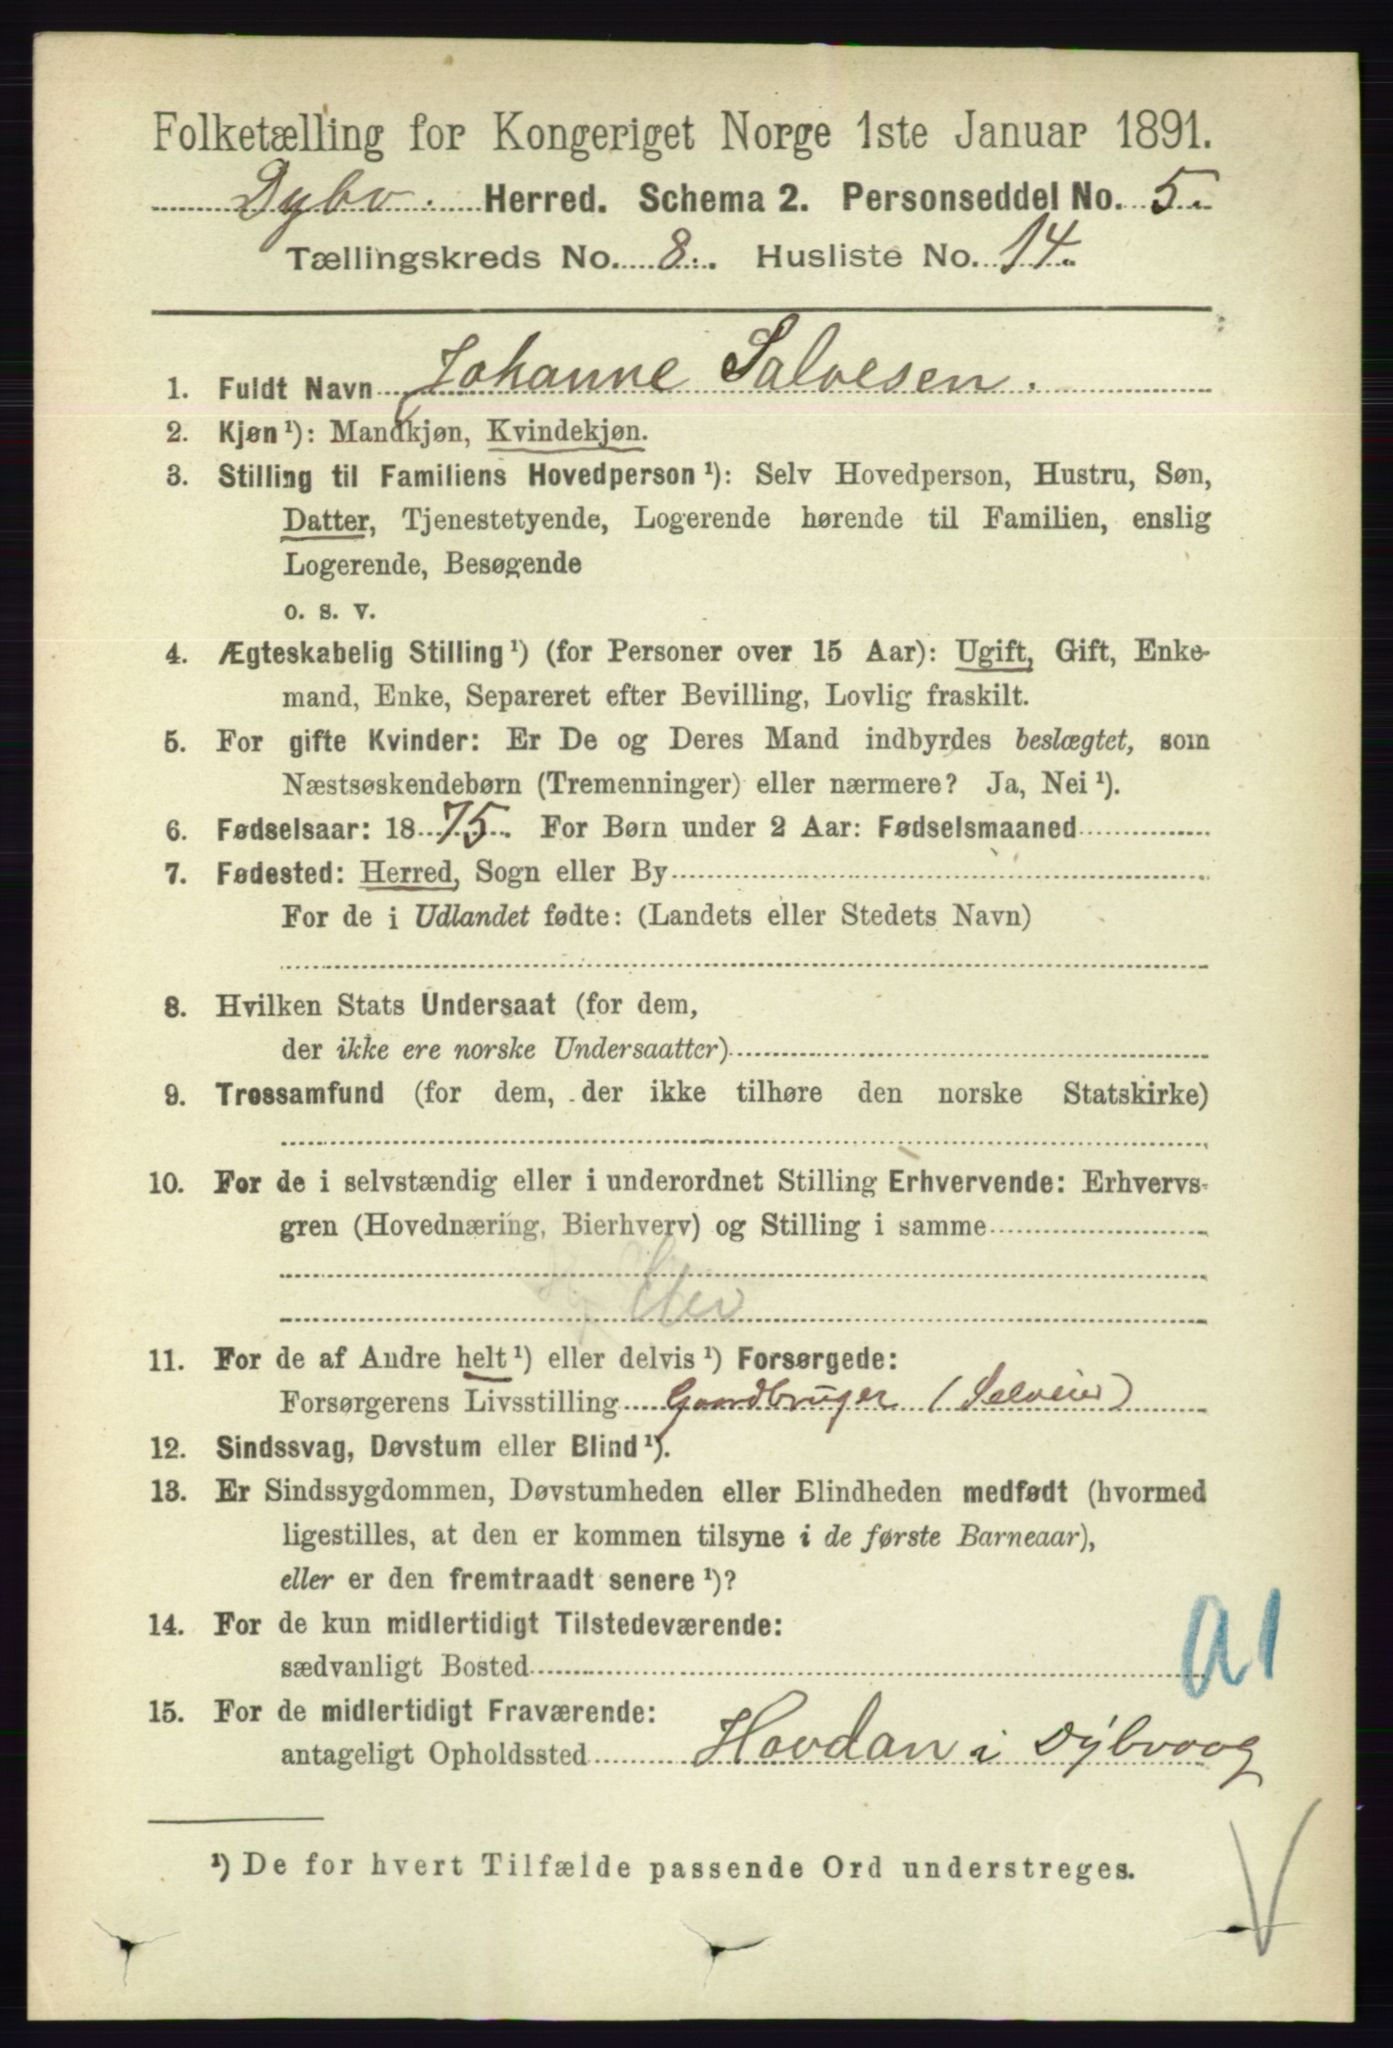 Folketælling for Kongeriget Norge 1ste Januar 1891.
Dybv. Herred. Schema 2. Personseddel No. 5.
Tællingskreds No. 8. Husliste No. 14.
1. Fuldt Navn Johanne Salvesen.
2. Kjøn¹): Mandkjøn, Kvindekjøn.
3. Stilling til Familiens Hovedperson¹): Selv Hovedperson, Hustru, Søn,
Datter, Tjenestetyende, Logerende hørende til Familien, enslig
Logerende, Besøgende
o. s. v.
4. Ægteskabelig Stilling¹) (for Personer over 15 Aar): Ugift, Gift, Enke-
mand, Enke, Separeret efter Bevilling, Lovlig fraskilt.
5. For gifte Kvinder: Er De og Deres Mand indbyrdes beslægtet, som
Næstsøskendebørn (Tremenninger) eller nærmere? Ja, Nei¹).
6. Fødselsaar: 1875. For Børn under 2 Aar: Fødselsmaaned
7. Fødested: Herred, Sogn eller By
For de i Udlandet fødte: (Landets eller Stedets Navn)
8. Hvilken Stats Undersaat (for dem,
der ikke ere norske Undersaatter)
9. Trossamfund (for dem, der ikke tilhøre den norske Statskirke)
10. For de i selvstændig eller i underordnet Stilling Erhvervende: Erhvervs-
gren (Hovednæring, Bierhverv) og Stilling i samme
11. For de af Andre helt¹) eller delvis¹) Forsørgede:
Forsørgerens Livsstilling Gaardbruger (Selveier)
12. Sindssvag, Døvstum eller Blind¹).
13. Er Sindssygdommen, Døvstumheden eller Blindheden medfødt (hvormed
ligestilles, at den er kommen tilsyne i de første Barneaar),
eller er den fremtraadt senere¹)?
14. For de kun midlertidigt Tilstedeværende:
sædvanligt Bosted
a1
15. For de midlertidigt Fraværende:
antageligt Opholdssted Hovdan i Dybvaag
¹) De for hvert Tilfælde passende Ord understreges.